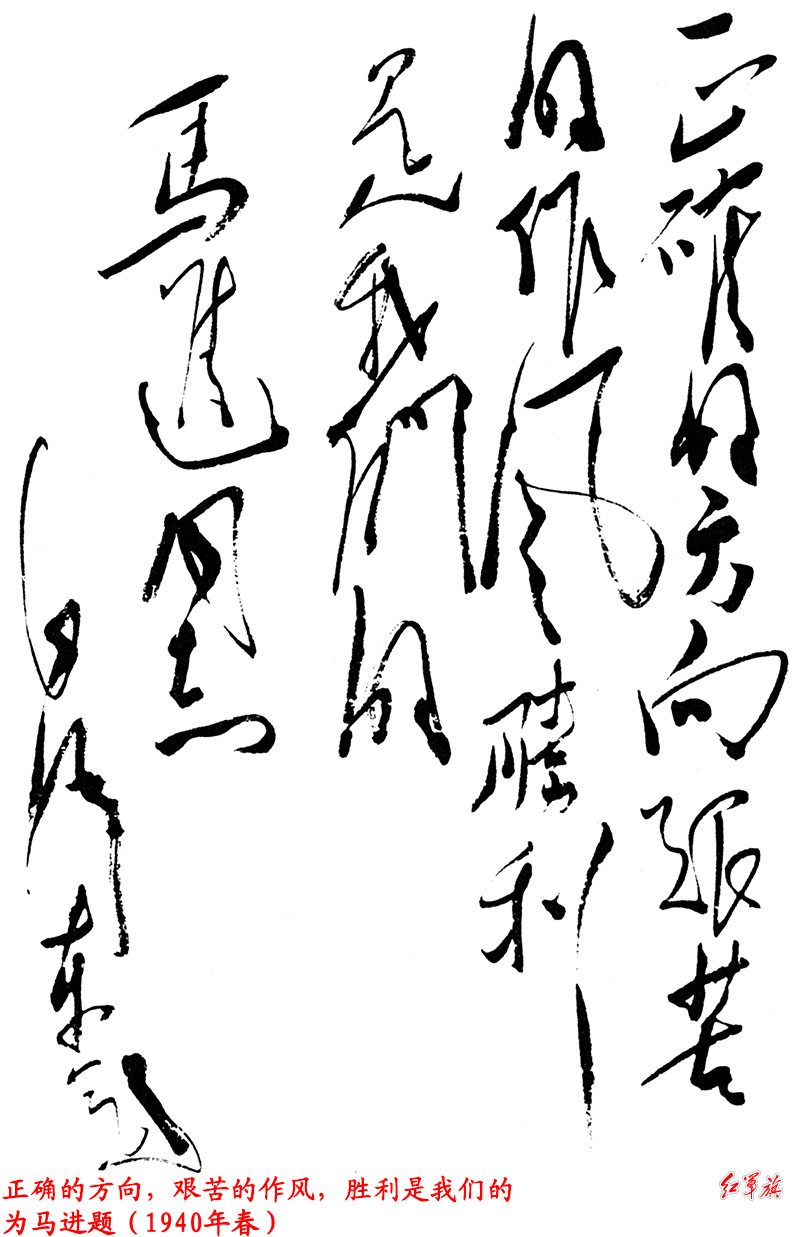 正确的方向艰苦
的作风胜利
是我們的
馬進同志
毛泽东题
正确的方向，艰苦的作风，胜利是我们的
为马进题（1940年春）
红军旗